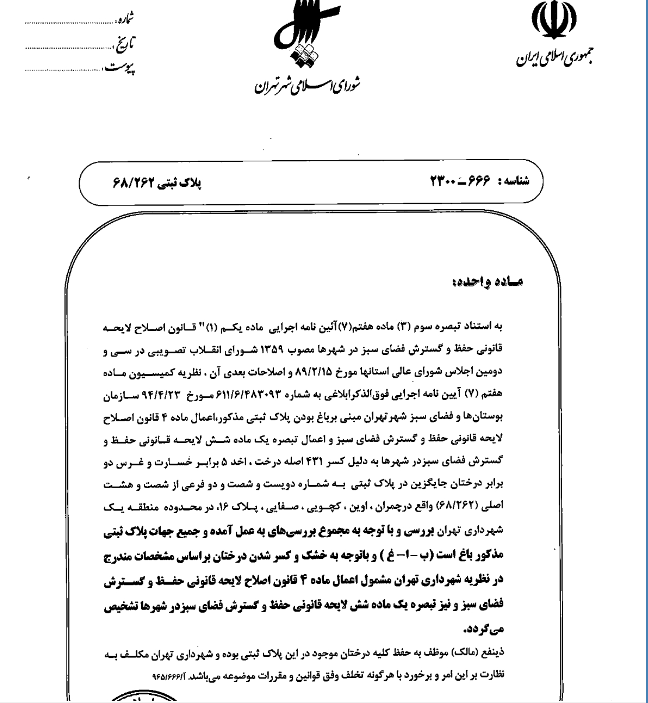 جمهوری اسلامی ایران
شورای اسلامی شهر تهران
شماره:
تاریخ:
پیوست:
شناسه : ۶۶۶ ــ ۲۳۰۰
پلاک ثبتی ۶۸/۲۶۲
ماده واحده:
به استناد تبصره سوم (۳) ماده هفتم(۷)آئین نامه اجرایی ماده یکم (۱)" قانون اصلاح لایحه
قانونی حفظ و گسترش فضای سبز در شهرها مصوب ۱۳۵۹ شورای انقلاب تصویبی در سی و
دومین اجلاس شورای عالی استانها مورخ ۸۹/۲/۱۵ و اصلاحات بعدی آن ، نظریه کمیسیون ماده
هفتم (۷) آیین نامه اجرایی فوق‌الذکرابلاغی به شماره ۶۱۱/۶/۴۸۳۰۹۳ مورخ ۹۴/۴/۲۳ سازمان
بوستان‌ها و فضای سبز شهرتهران مبنی برباغ بودن پلاک ثبتی مذکور،اعمال ماده ۴ قانون اصلاح
لایحه قانونی حفظ و گسترش فضای سبز و اعمال تبصره یک ماده شش لایحه قانونی حفظ و
گسترش فضای سبزدر شهرها به دلیل کسر ۴۳۱ اصله درخت ، اخذ ۵ برابر خسارت و غرس دو
برابر درختان جایگزین در پلاک ثبتی به شماره دویست و شصت و دو فرعی از شصت و هشت
اصلی (۶۸/۲۶۲) واقع درچمران ، اوین ، کچویی ، صفایی ، پلاک ۱۶، در محدوده منطقه یک
شهرداری تهران بررسی و با توجه به مجموع بررسی‌های به عمل آمده و جمیع جهات پلاک ثبتی
مذکور باغ است (ب – ا – غ ) و باتوجه به خشک و کسر شدن درختان براساس مشخصات مندرج
در نظریه شهرداری تهران مشمول اعمال ماده ۴ قانون اصلاح لایحه قانونی حفظ و گسترش
فضای سبز و نیز تبصره یک ماده شش لایحه قانونی حفظ و گسترش فضای سبزدر شهرها تشخیص
می‌گردد.
ذینفع (مالک) موظف به حفظ کلیه درختان موجود در این پلاک ثبتی بوده و شهرداری تهران مکلف به
نظارت بر این امر و برخورد با هرگونه تخلف وفق قوانین و مقررات موضوعه می‌باشد.